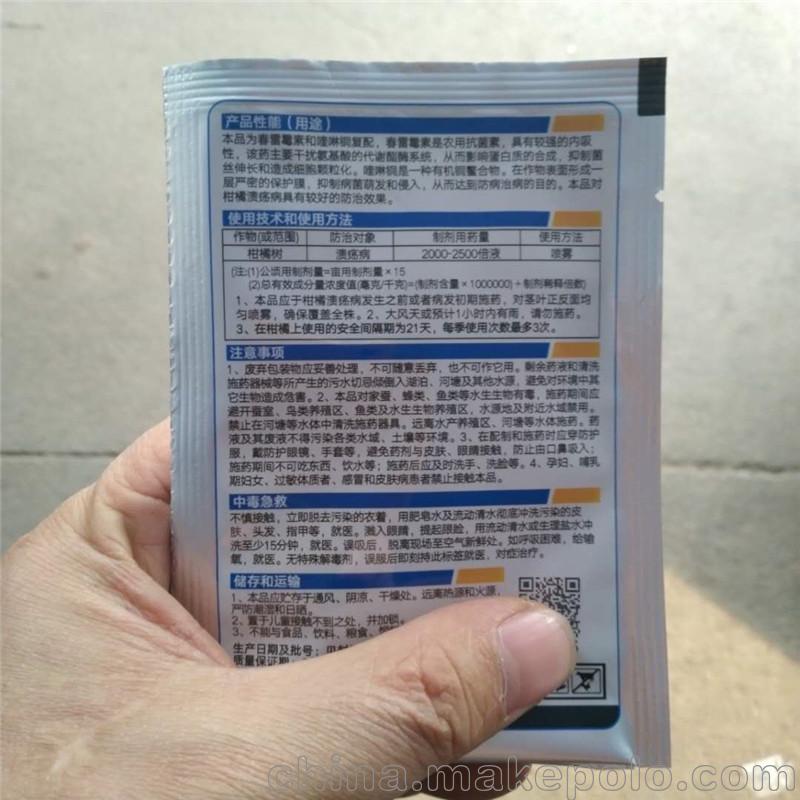 产品性能（用途）
本品为春雷霉素和喹啉铜复配，春雷霉素是农用抗菌素，具有较强的内吸
性，该药主要干扰氨基酸的代谢酯酶系统，从而影响蛋白质的合成，抑制菌
丝伸长和造成细胞颗粒化。喹啉铜是一种有机铜螯合物。在作物表面形成一
层严密的保护膜，抑制病菌萌发和侵入，从而达到防病治病的目的。本品对
柑橘溃疡病具有较好的防治效果。
使用技术和使用方法
作物(或范围) 防治对象 制剂用药量 使用方法
柑橘树 溃疡病 2000-2500倍液 喷雾
(注:(1)公顷用制剂量=亩用制剂量×15
(2)总有效成分量浓度值(毫克/千克)=(制剂含量×1000000)÷制剂稀释倍数)
1、本品应于柑橘溃疡病发生之前或者病发初期施药，对茎叶正反面均
匀喷雾，确保覆盖全株。2、大风天或预计1小时内有雨，请勿施药。
3、在柑橘上使用的安全间隔期为21天，每季使用次数最多3次。
注意事项
1、废弃包装物应妥善处理，不可随意丢弃，也不可作它用。剩余药液和清洗
施药器械等所产生的污水切忌倾倒入湖泊、河塘及其他水源，避免对环境中其
它生物造成危害。2、本品对家蚕、蜂类、鱼类等水生生物有毒，施药期间应
避开蚕室、鸟类养殖区、鱼类及水生生物养殖区，水源地及附近水域禁用。
禁止在河塘等水体中清洗施药器具。远离水产养殖区、河塘等水体施药。药
液及其废液不得污染各类水域、土壤等环境。3、在配制和施药时应穿防护
服，戴防护眼镜、手套等，避免药剂与皮肤、眼睛接触，防止由口鼻吸入；
施药期间不可吃东西、饮水等；施药后应及时洗手、洗脸等。4、孕妇、哺乳
期妇女、过敏体质者、感冒和皮肤病患者禁止接触本品。
中毒急救
不慎接触，立即脱去污染的衣着，用肥皂水及流动清水彻底冲洗污染的皮
肤、头发、指甲等，就医。溅入眼睛，提起眼睑，用流动清水或生理盐水冲
洗至少15分钟，就医。误吸后，脱离现场至空气新鲜处。如呼吸困难，给输
氧，就医。无特殊解毒剂，误服后即刻持此标签就医，对症治疗。
储存和运输
1、本品应贮存于通风、阴凉、干燥处。远离热源和火源，
严防潮湿和日晒。
2、置于儿童接触不到之处，并加锁。
3、不能与食品、饮料、粮食、
生产日期及批号：见
质量保证期
china.makepolo.com